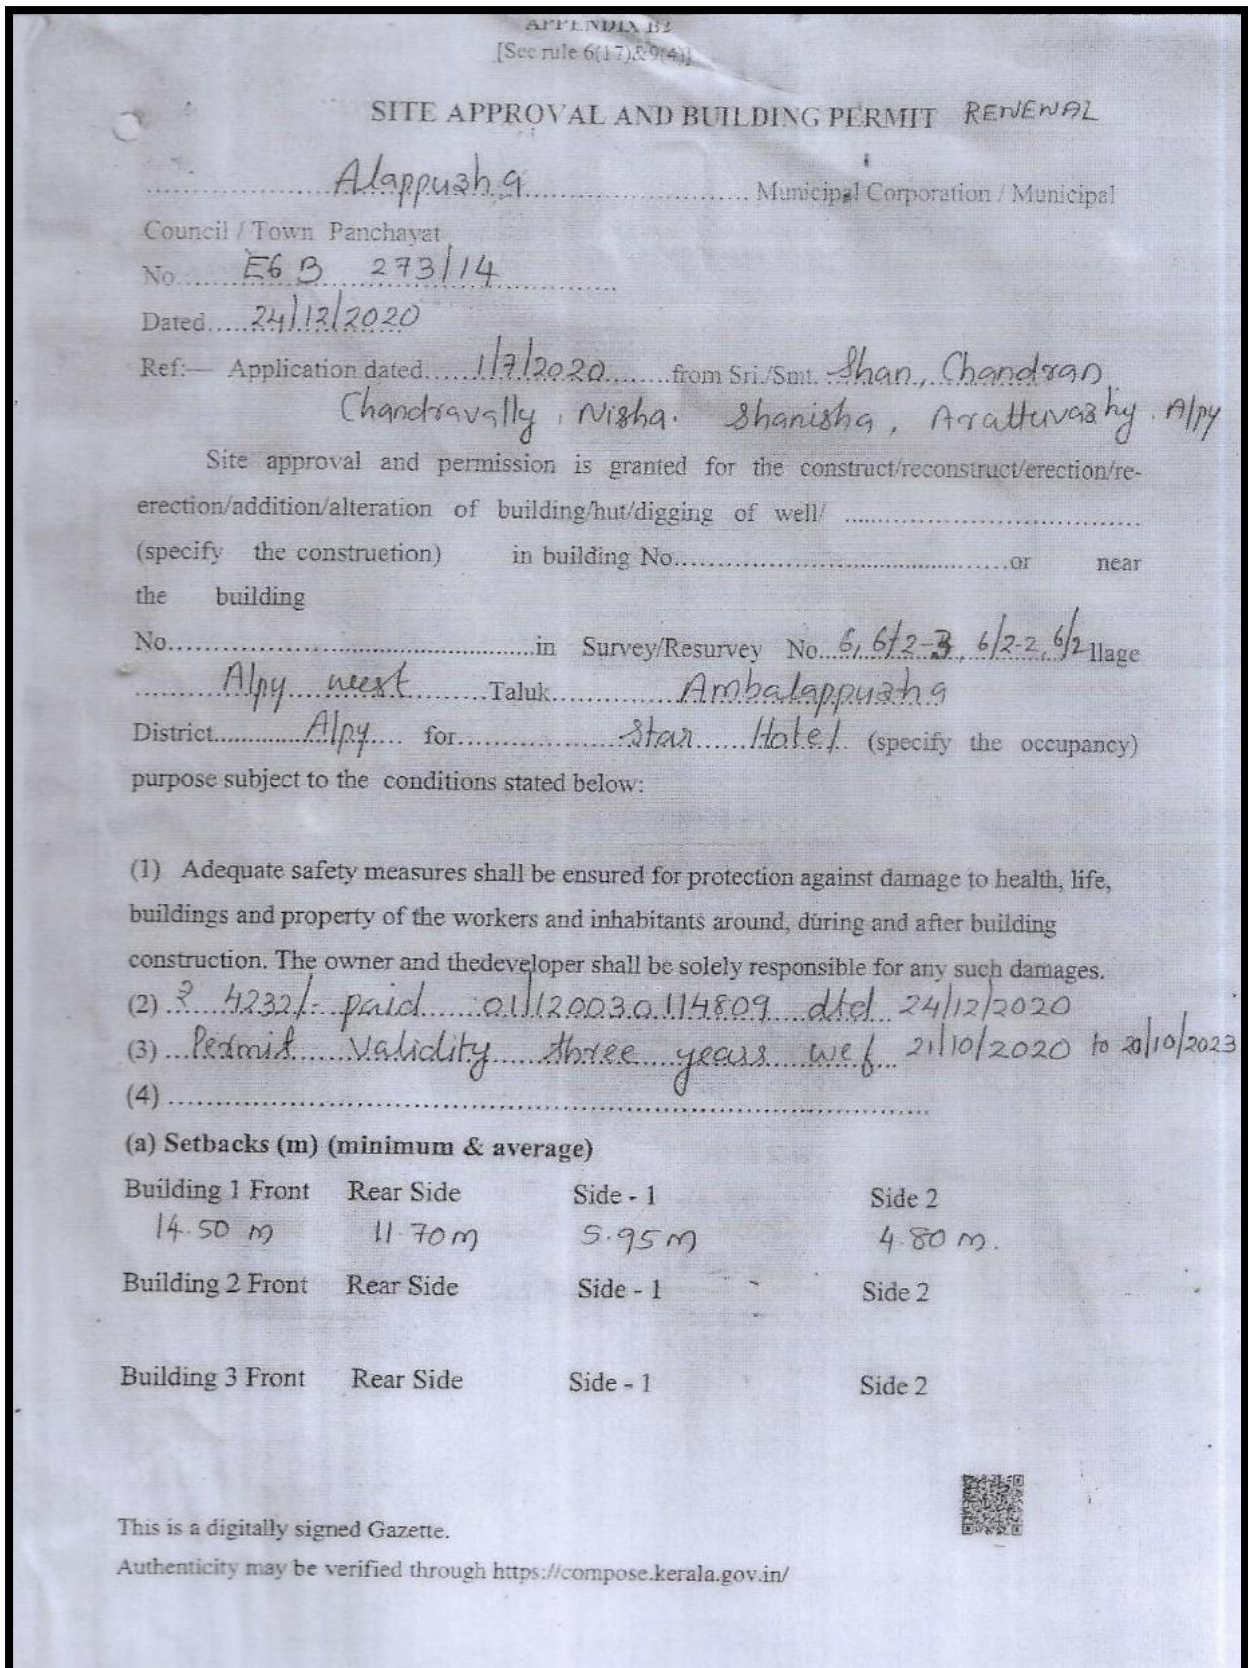 APPENDIX B2
[See rule 6(17)&9(4)]
SITE APPROVAL AND BUILDING PERMIT RENEWAL
Alappuzha Municipal Corporation / Municipal
Council / Town Panchayat
No. E6 B 273/14
Dated 24/12/2020
Ref:— Application dated 1/7/2020 from Sri./Smt. Shan, Chandran,
Chandravally, Nisha. Shanisha, Arattuvazhy. Alpy
Site approval and permission is granted for the construct/reconstruct/erection/re-
erection/addition/alteration of building/hut/digging of well/
(specify the construction) in building No. or near
the building
No. in Survey/Resurvey No. 6, 6/2-3, 6/2-2, 6/2 llage
Alpy west Taluk Ambalappuzha
District Alpy for Star Hotel (specify the occupancy)
purpose subject to the conditions stated below:
(1) Adequate safety measures shall be ensured for protection against damage to health, life,
buildings and property of the workers and inhabitants around, during and after building
construction. The owner and thedeveloper shall be solely responsible for any such damages.
(2) ₹ 4232/- paid 01/120030114809 dtd 24/12/2020
(3) Permit Validity three years wef 21/10/2020 to 20/10/2023
(4)
(a) Setbacks (m) (minimum & average)
Building 1 Front Rear Side Side - 1 Side 2
14.50 m 11.70m 5.95m 4.80 m.
Building 2 Front Rear Side Side - 1 Side 2
Building 3 Front Rear Side Side - 1 Side 2
This is a digitally signed Gazette.
Authenticity may be verified through https://compose.kerala.gov.in/